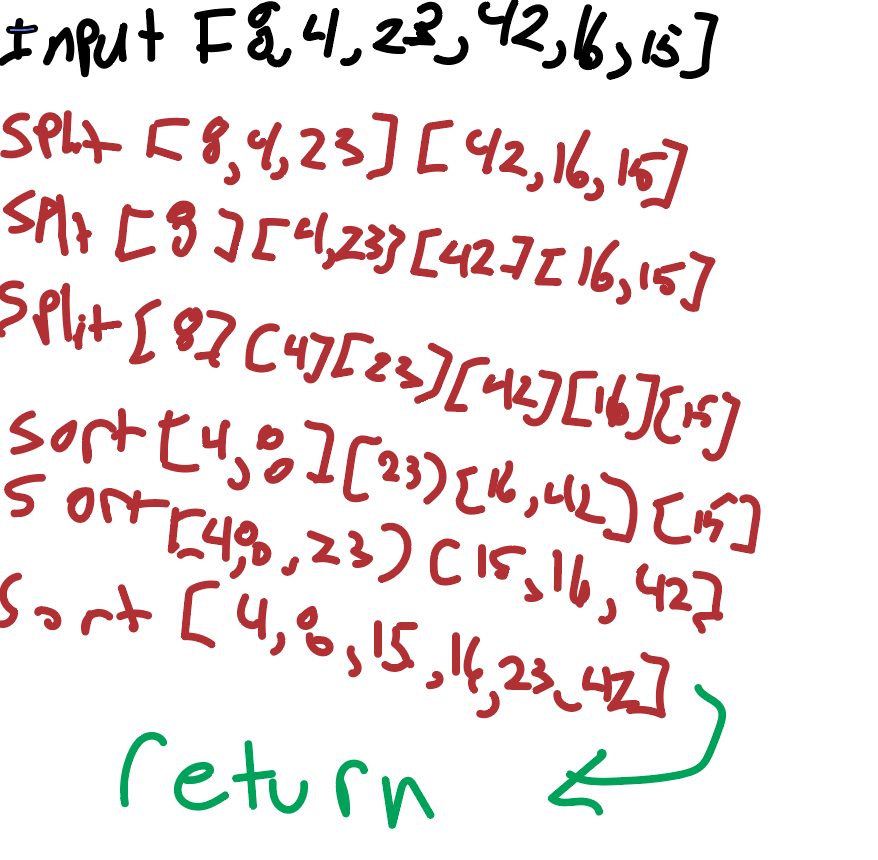 Input [8,4,23,42,16,15]
Split [8,4,23][42,16,15]
Split [8][4,23][42][16,15]
Split [8][4][23][42][16][15]
Sort [4,8][23][16,42][15]
Sort [4,8,23][15,16,42]
Sort [4,8,15,16,23,42]
return